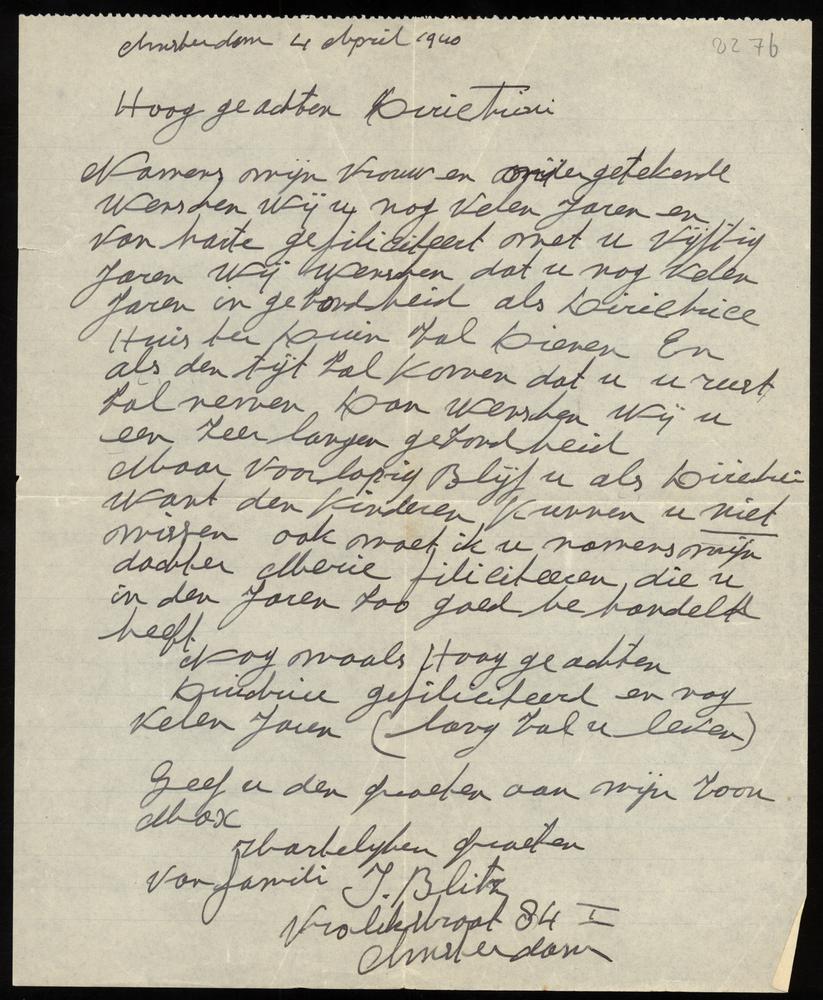 2276
Amsterdam 4 April 1940
Hoog geachten Dirictrisi
Namens mijn vrouw en ondergetekende
Wenschen Wij u nog velen Jaren en
van harte gefiliciteert met u Vijftig
Jaren Wij Wenschen dat u nog velen
Jaren in gezondheid als Dirictrice
Huis ter Duin Zal Dienen En
als den tijt Zal Komen dat u u rust
Zal nemen Dan Wenschen Wij u
een Zeer langen gezondheid
Maar Voorlopig Blijf u als Dirictri
Want den Kinderen Kunnen u niet
missen ook moet ik u namens mijn
dochter Merie filiciteeren die u
in den Jaren zoo goed behandelt
heeft
Nog maals Hoog geachten
Dirictrice gefiliciteerd en nog
velen Jaren (lang Zal u leven)
Geef u den groeten aan mijn Zoon
Max
Hartelijken groeten
van famili J. Blitz
Vrolikstraat 84 I
Amsterdam